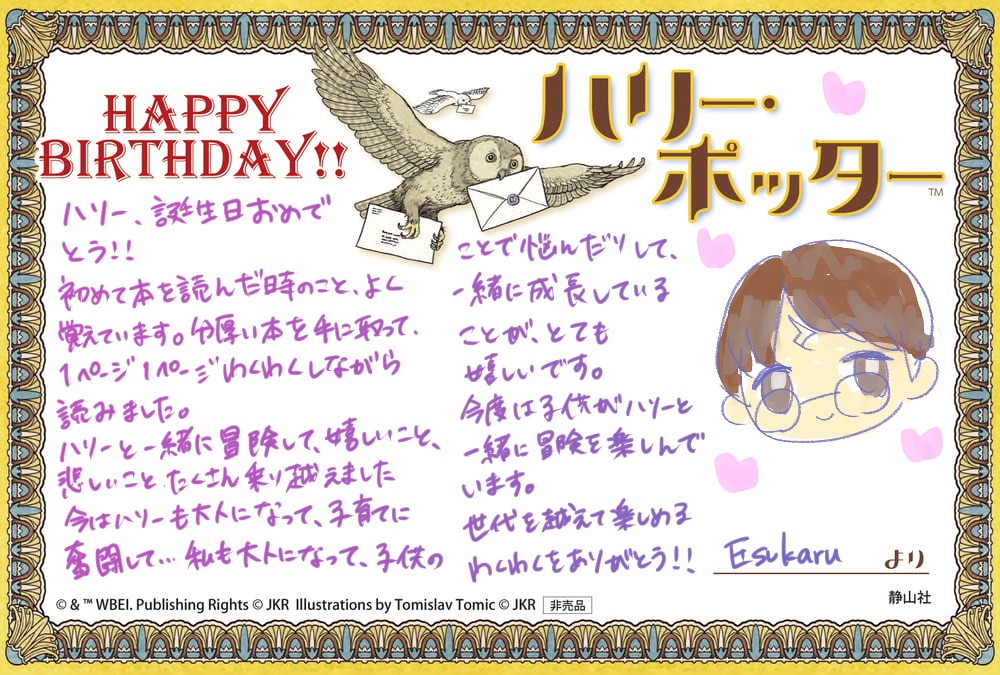 HAPPY
BIRTHDAY!!
ハリー・
ポッター™
ハリー、誕生日おめで
とう!!
初めて本を読んだ時のこと、よく
覚えています。分厚い本を手に取って、
1ページ1ページわくわくしながら
読みました。
ハリーと一緒に冒険して、嬉しいこと、
悲しいこと、たくさん乗り越えました
今はハリーも大人になって、子育てに
奮闘して… 私も大人になって、子供の
ことで悩んだりして、
一緒に成長している
ことが、とても
嬉しいです。
今度は子供がハリーと
一緒に冒険を楽しんで
います。
世代を越えて楽しめる
わくわくをありがとう!!
Esukaru より
静山社
© & ™ WBEI. Publishing Rights © JKR Illustrations by Tomislav Tomic © JKR 非売品